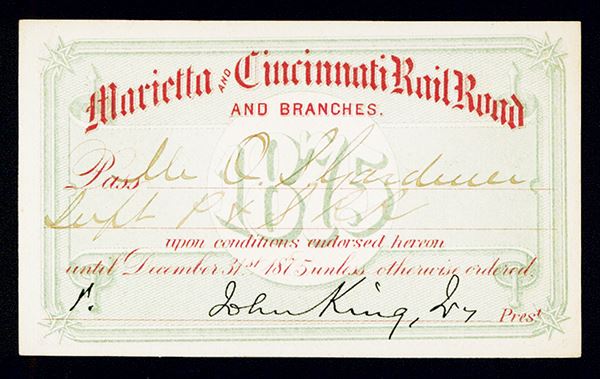 Marietta AND Cincinnati Rail Road
AND BRANCHES.
1875
Pass Mr O. S. Gardiner
Supt P & S R R
upon conditions endorsed hereon
until December 31st 1875 unless otherwise ordered.
John King, Jr Prest